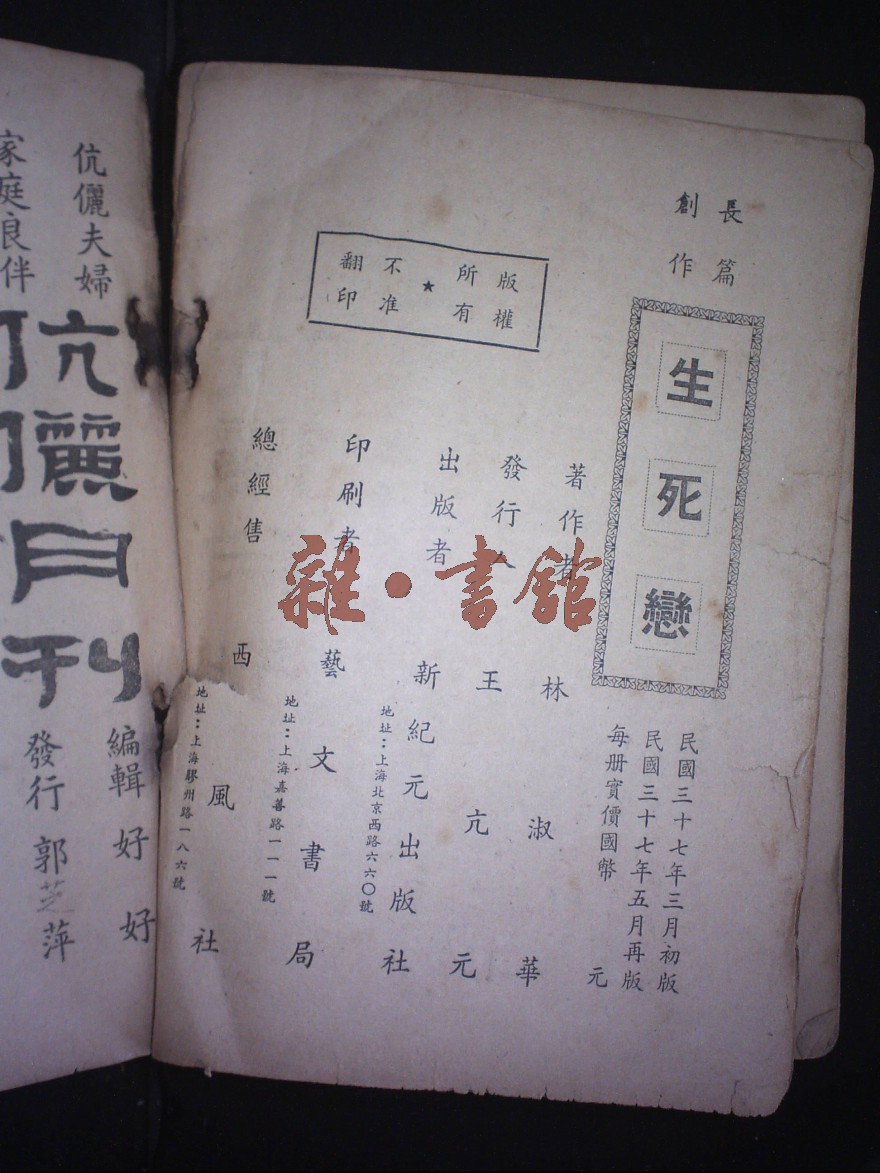 長篇
創作
生死戀
民國三十七年三月初版
民國三十七年五月再版
每冊實價國幣 元
著作者 林淑華
發行人 王亢元
出版者 新紀元出版社
地址：上海北京西路六六〇號
印刷者 藝文書局
地址：上海嘉善路一一一號
總經售 西風社
地址：上海膠州路一八六號
版權所有★不准翻印
雜·書館
伉儷夫婦
家庭良伴
伉儷月刊
編輯 好好
發行 郭芝萍